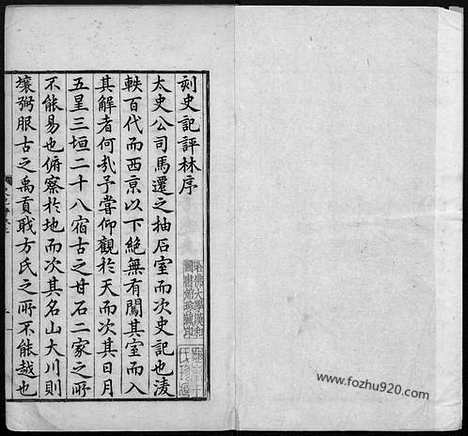 刻史記評林序
太史公司馬遷之抽石室而次史記也淩
軼百代而西京以下絶無有闖其室而入
其解者何㢤予嘗仰觀於天而次其日月
五星三垣二十八宿古之甘石二家之所
不能易也俯察於地而次其名山大川則
壤弼服古之禹貢職方氏之所不能越也
www.fozhu920.com